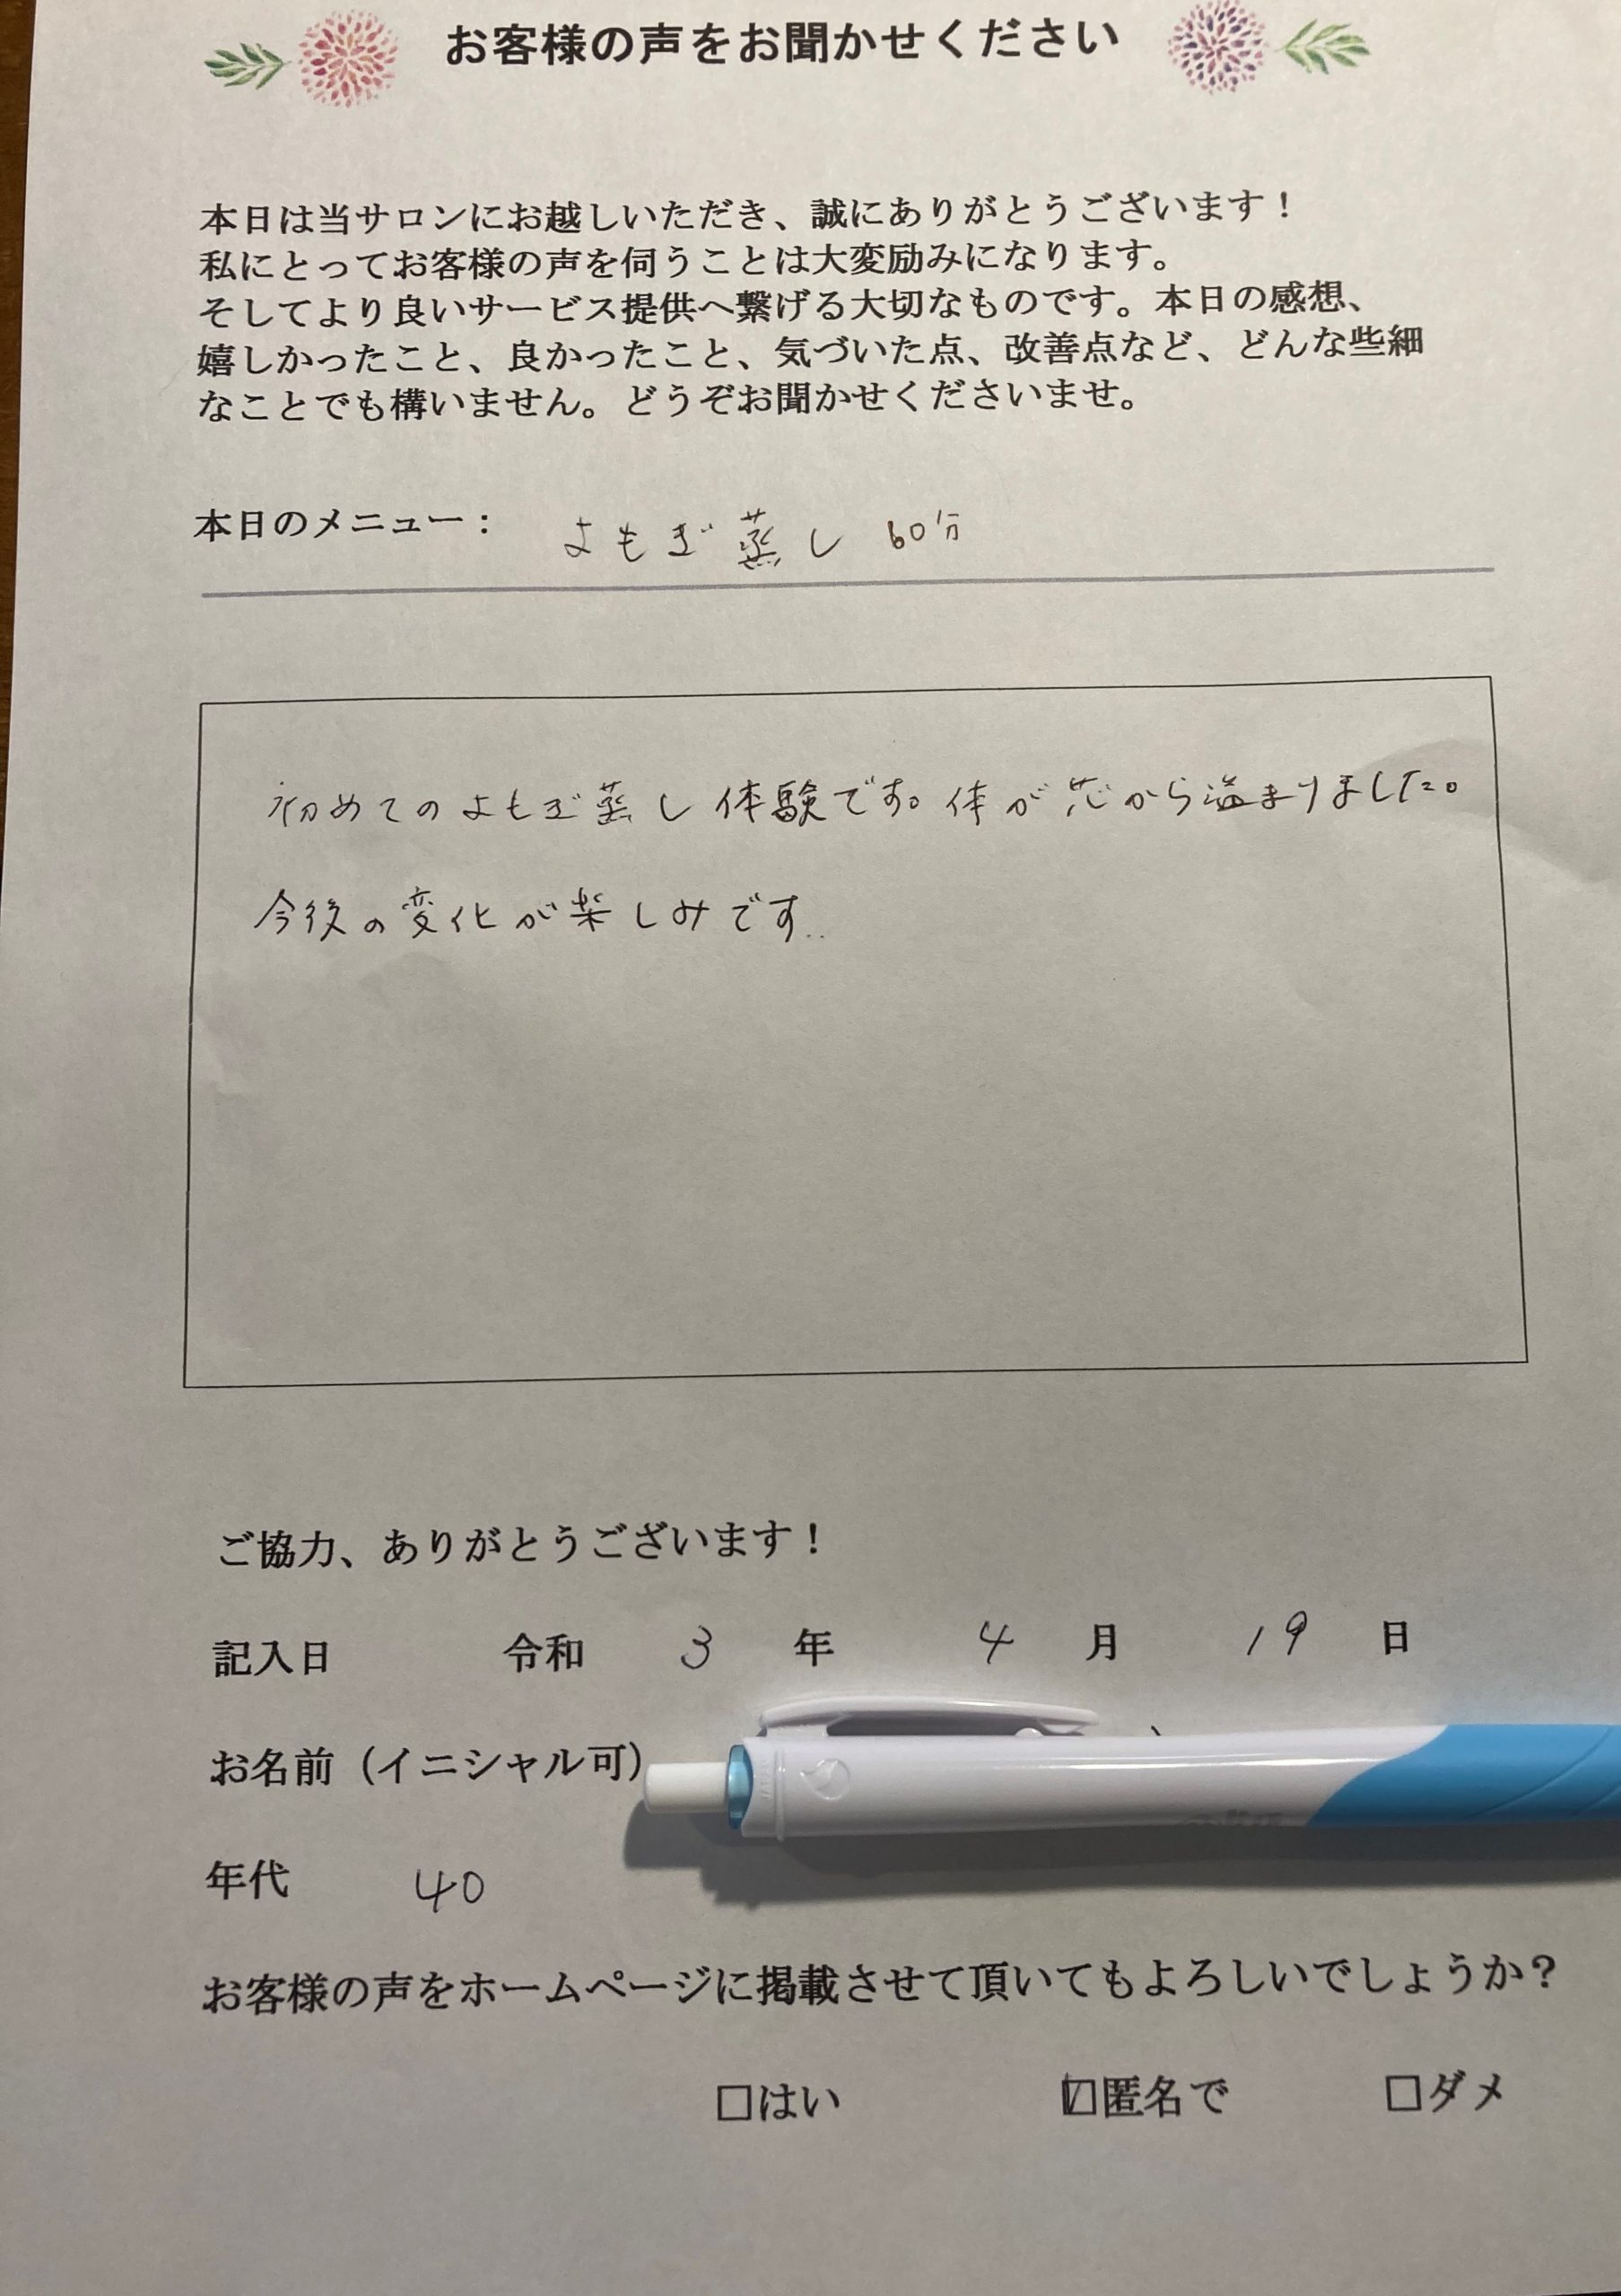 お客様の声をお聞かせください
本日は当サロンにお越しいただき、誠にありがとうございます！
私にとってお客様の声を伺うことは大変励みになります。
そしてより良いサービス提供へ繋げる大切なものです。本日の感想、
嬉しかったこと、良かったこと、気づいた点、改善点など、どんな些細
なことでも構いません。どうぞお聞かせくださいませ。
本日のメニュー： よもぎ蒸し 60分
初めてのよもぎ蒸し体験です。体が芯から温まりました。
今後の変化が楽しみです..
ご協力、ありがとうございます！
記入日 令和 3 年 4 月 19 日
お名前（イニシャル可）
年代 40
お客様の声をホームページに掲載させて頂いてもよろしいでしょうか？
□はい ☑匿名で □ダメ